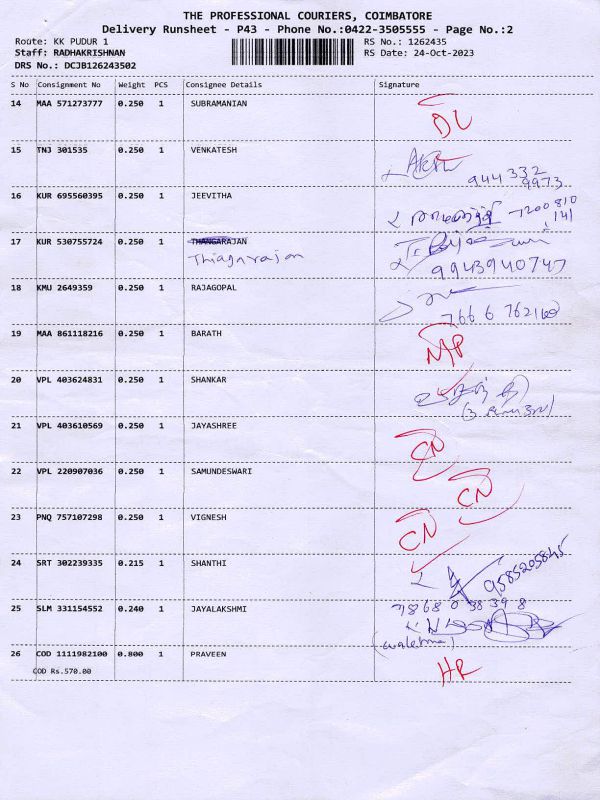 THE PROFESSIONAL COURIERS, COIMBATORE
Delivery Runsheet - P43 - Phone No.:0422-3505555 - Page No.:2
Route: KK PUDUR 1 RS No.: 1262435
Staff: RADHAKRISHNAN RS Date: 24-Oct-2023
DRS No.: DCJB126243502
S No Consignment No Weight PCS Consignee Details Signature
14 MAA 571273777 0.250 1 SUBRAMANIAN
DL
15 TNJ 301535 0.250 1 VENKATESH
944 332
9973
16 KUR 695560395 0.250 1 JEEVITHA
7200 810
141
17 KUR 530755724 0.250 1 THANGARAJAN
Thiagarajan
9943940747
18 KMU 2649359 0.250 1 RAJAGOPAL
766 6 762160
19 MAA 861118216 0.250 1 BARATH
NP
20 VPL 403624831 0.250 1 SHANKAR
21 VPL 403610569 0.250 1 JAYASHREE
CN
22 VPL 220907036 0.250 1 SAMUNDESWARI
CN
23 PNQ 757107298 0.250 1 VIGNESH
CN
24 SRT 302239335 0.215 1 SHANTHI
9585205845
25 SLM 331154552 0.240 1 JAYALAKSHMI
78680 38398
26 COD 1111982100 0.800 1 PRAVEEN
COD Rs.570.00
HR